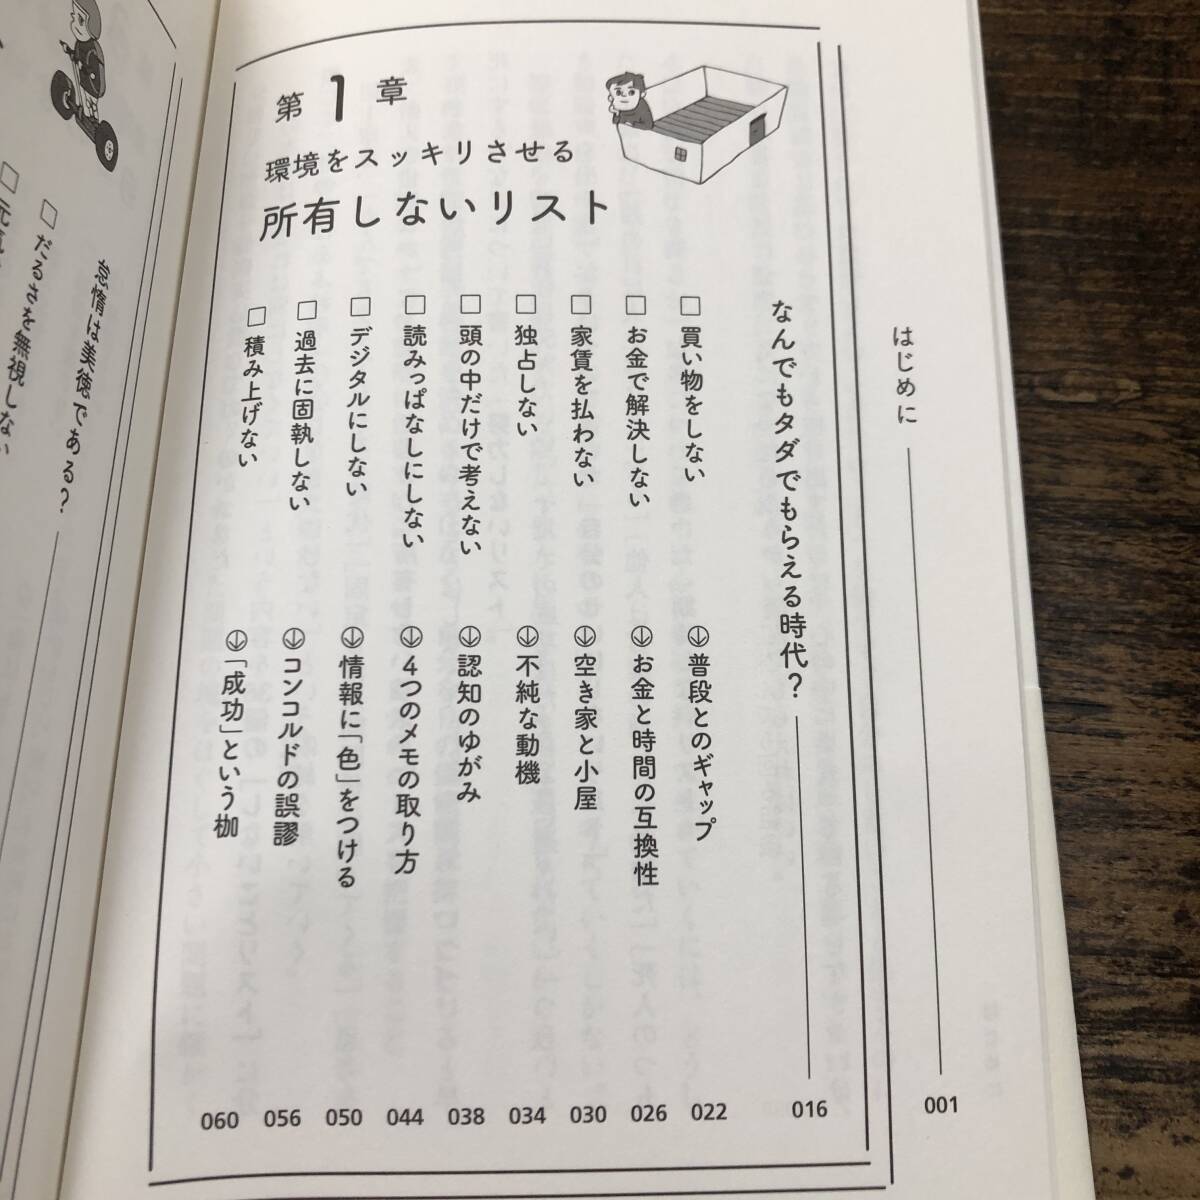 はじめに 001
第1章
環境をスッキリさせる
所有しないリスト
なんでもタダでもらえる時代？ 016
□ 買い物をしない ↓ 普段とのギャップ 022
□ お金で解決しない ↓ お金と時間の互換性 026
□ 家賃を払わない ↓ 空き家と小屋 030
□ 独占しない ↓ 不純な動機 034
□ 頭の中だけで考えない ↓ 認知のゆがみ 038
□ 読みっぱなしにしない ↓ 4つのメモの取り方 044
□ デジタルにしない ↓ 情報に「色」をつける 050
□ 過去に固執しない ↓ コンコルドの誤謬 056
□ 積み上げない ↓ 「成功」という枷 060
怠惰は美徳である？
□ だるさを無視しない
□ 元気